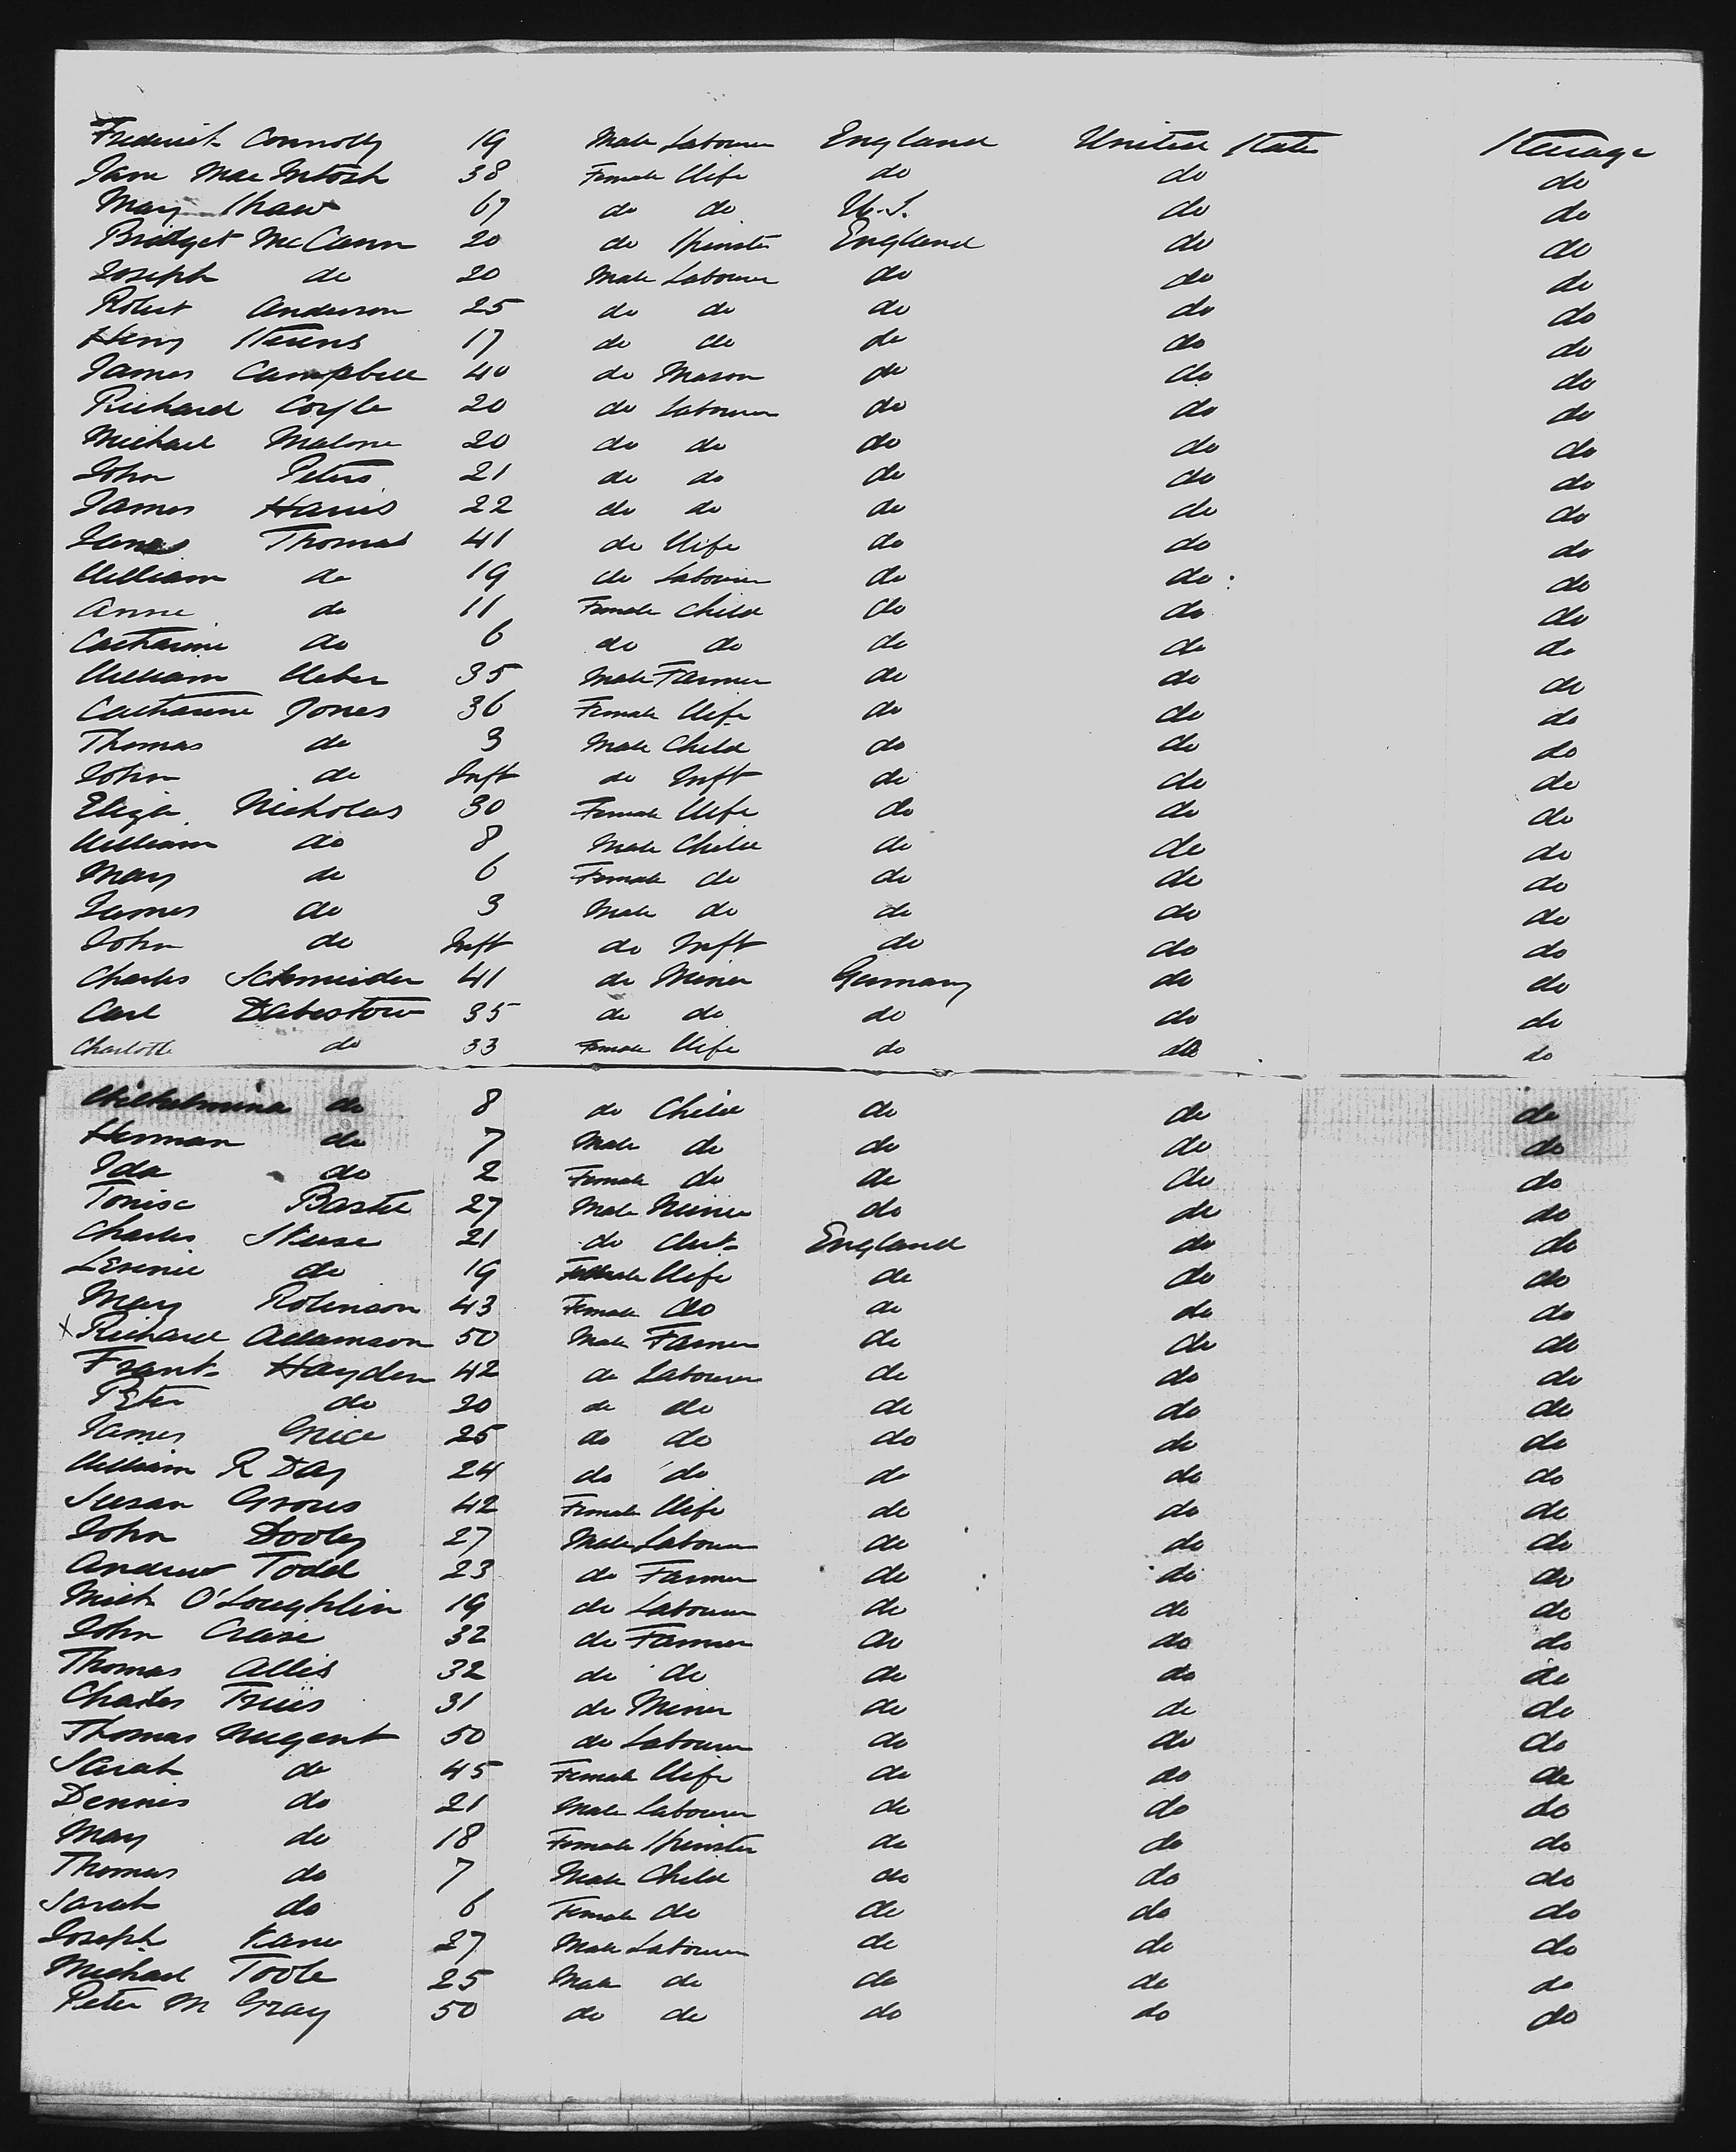 Frederick Connolly 19 Male Labourer England United States Steerage
Jane MacIntosh 38 Female Wife do do do
Mary Shaw 67 do do U.S. do do
Bridget McCann 20 do Spinster England do do
Joseph do 20 Male Labourer do do do
Robert Anderson 25 do do do do do
Henry Stevens 17 do do do do do
James Campbell 40 do Mason do do do
Richard Coyle 20 do Labourer do do do
Michael Malone 20 do do do do do
John Peters 21 do do do do do
James Harris 22 do do do do do
Thomas 41 do Wife do do do
William do 19 do Labourer do do do
Anne do 11 Female Child do do do
Catharine do 6 do do do do do
William Weber 35 Male Farmer do do do
Catharine Jones 36 Female Wife do do do
Thomas do 3 Male Child do do do
John do Inft do Inft do do do
Eliza Nicholas 30 Female Wife do do do
William do 8 Male Child do do do
Mary do 6 Female do do do do
James do 3 Male do do do do
John do Inft do Inft do do do
Charles Schneider 41 do Miner Germany do do
Carl Dabestow 35 do do do do do
Charlotte do 33 Female Wife do do do
Wilhelmina do 8 do Child do do do
Herman do 7 Male do do do do
Ida do 2 Female do do do do
Bastel 27 Male Miner do do do
Charles 21 do Clerk England do do
do 19 Female Wife do do do
Mary Robinson 43 Female do do do do
x Richard Adamson 50 Male Farmer do do do
Frank Hayden 42 do Labourer do do do
Peter do 20 do do do do do
James Grice 25 do do do do do
William R Day 24 do do do do do
Susan Groves 42 Female Wife do do do
John Dooley 27 Male Labourer do do do
Andrew Todd 23 do Farmer do do do
Mick O'Loughlin 19 do Labourer do do do
John Crease 32 do Farmer do do do
Thomas Allis 32 do do do do do
Charles 31 do Miner do do do
Thomas Nugent 50 do Labourer do do do
Sarah do 45 Female Wife do do do
Dennis do 21 Male Labourer do do do
Mary do 18 Female Spinster do do do
Thomas do 7 Male Child do do do
Sarah do 6 Female do do do do
Joseph Kane 27 Male Labourer do do do
Michael Toole 25 Male do do do do
Peter M Gray 50 do do do do do